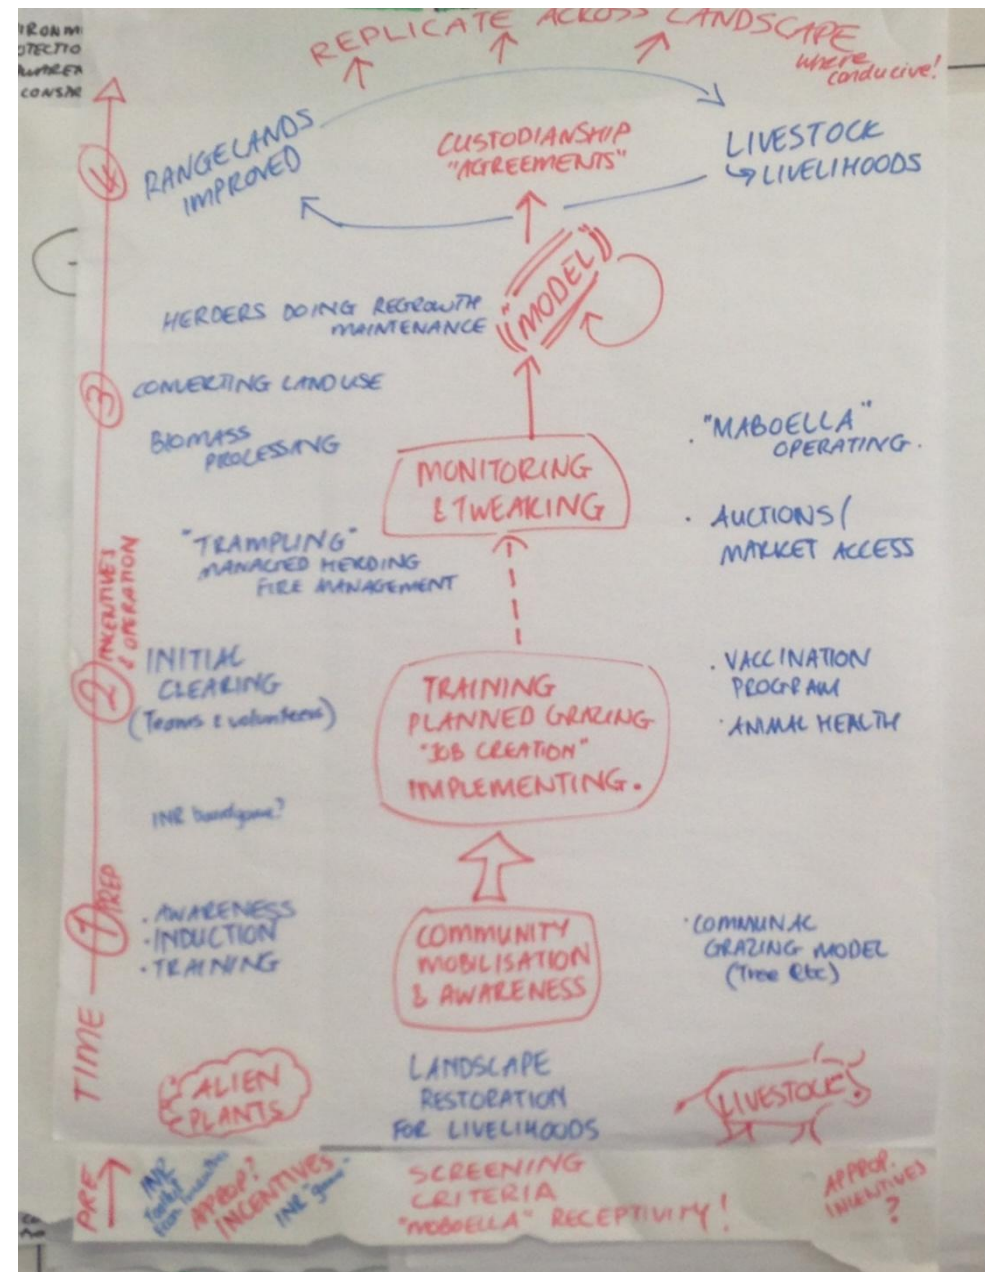 REPLICATE ACROSS LANDSCAPE
where
conducive!
CONSAR
4
RANGELANDS
IMPROVED
CUSTODIANSHIP
"AGREEMENTS"
LIVESTOCK
↳ LIVELIHOODS
"MODEL"
HERDERS DOING REGROWTH
MAINTENANCE
3
CONVERTING LAND USE
BIOMASS
PROCESSING
MONITORING
& TWEAKING
. "MABOELLA"
OPERATING.
. AUCTIONS/
MARKET ACCESS
"TRAMPLING"
MANAGED HERDING
FIRE MANAGEMENT
INCENTIVES
& OPERATION
2
INITIAL
CLEARING
(Teams & volunteers)
TRAINING
PLANNED GRAZING
"JOB CREATION"
IMPLEMENTING.
. VACCINATION
PROGRAM
. ANIMAL HEALTH
INR boardgame?
1 PREP
. AWARENESS
. INDUCTION
. TRAINING
COMMUNITY
MOBILISATION
& AWARENESS
. COMMUNAL
GRAZING MODEL
(Tree etc)
TIME
ALIEN
PLANTS
LANDSCAPE
RESTORATION
FOR LIVELIHOODS
LIVESTOCK
PRE
APPROP?
INCENTIVES
INR "game"
SCREENING
CRITERIA
"MOBOELLA" RECEPTIVITY!
APPROP.
INCENTIVES
?